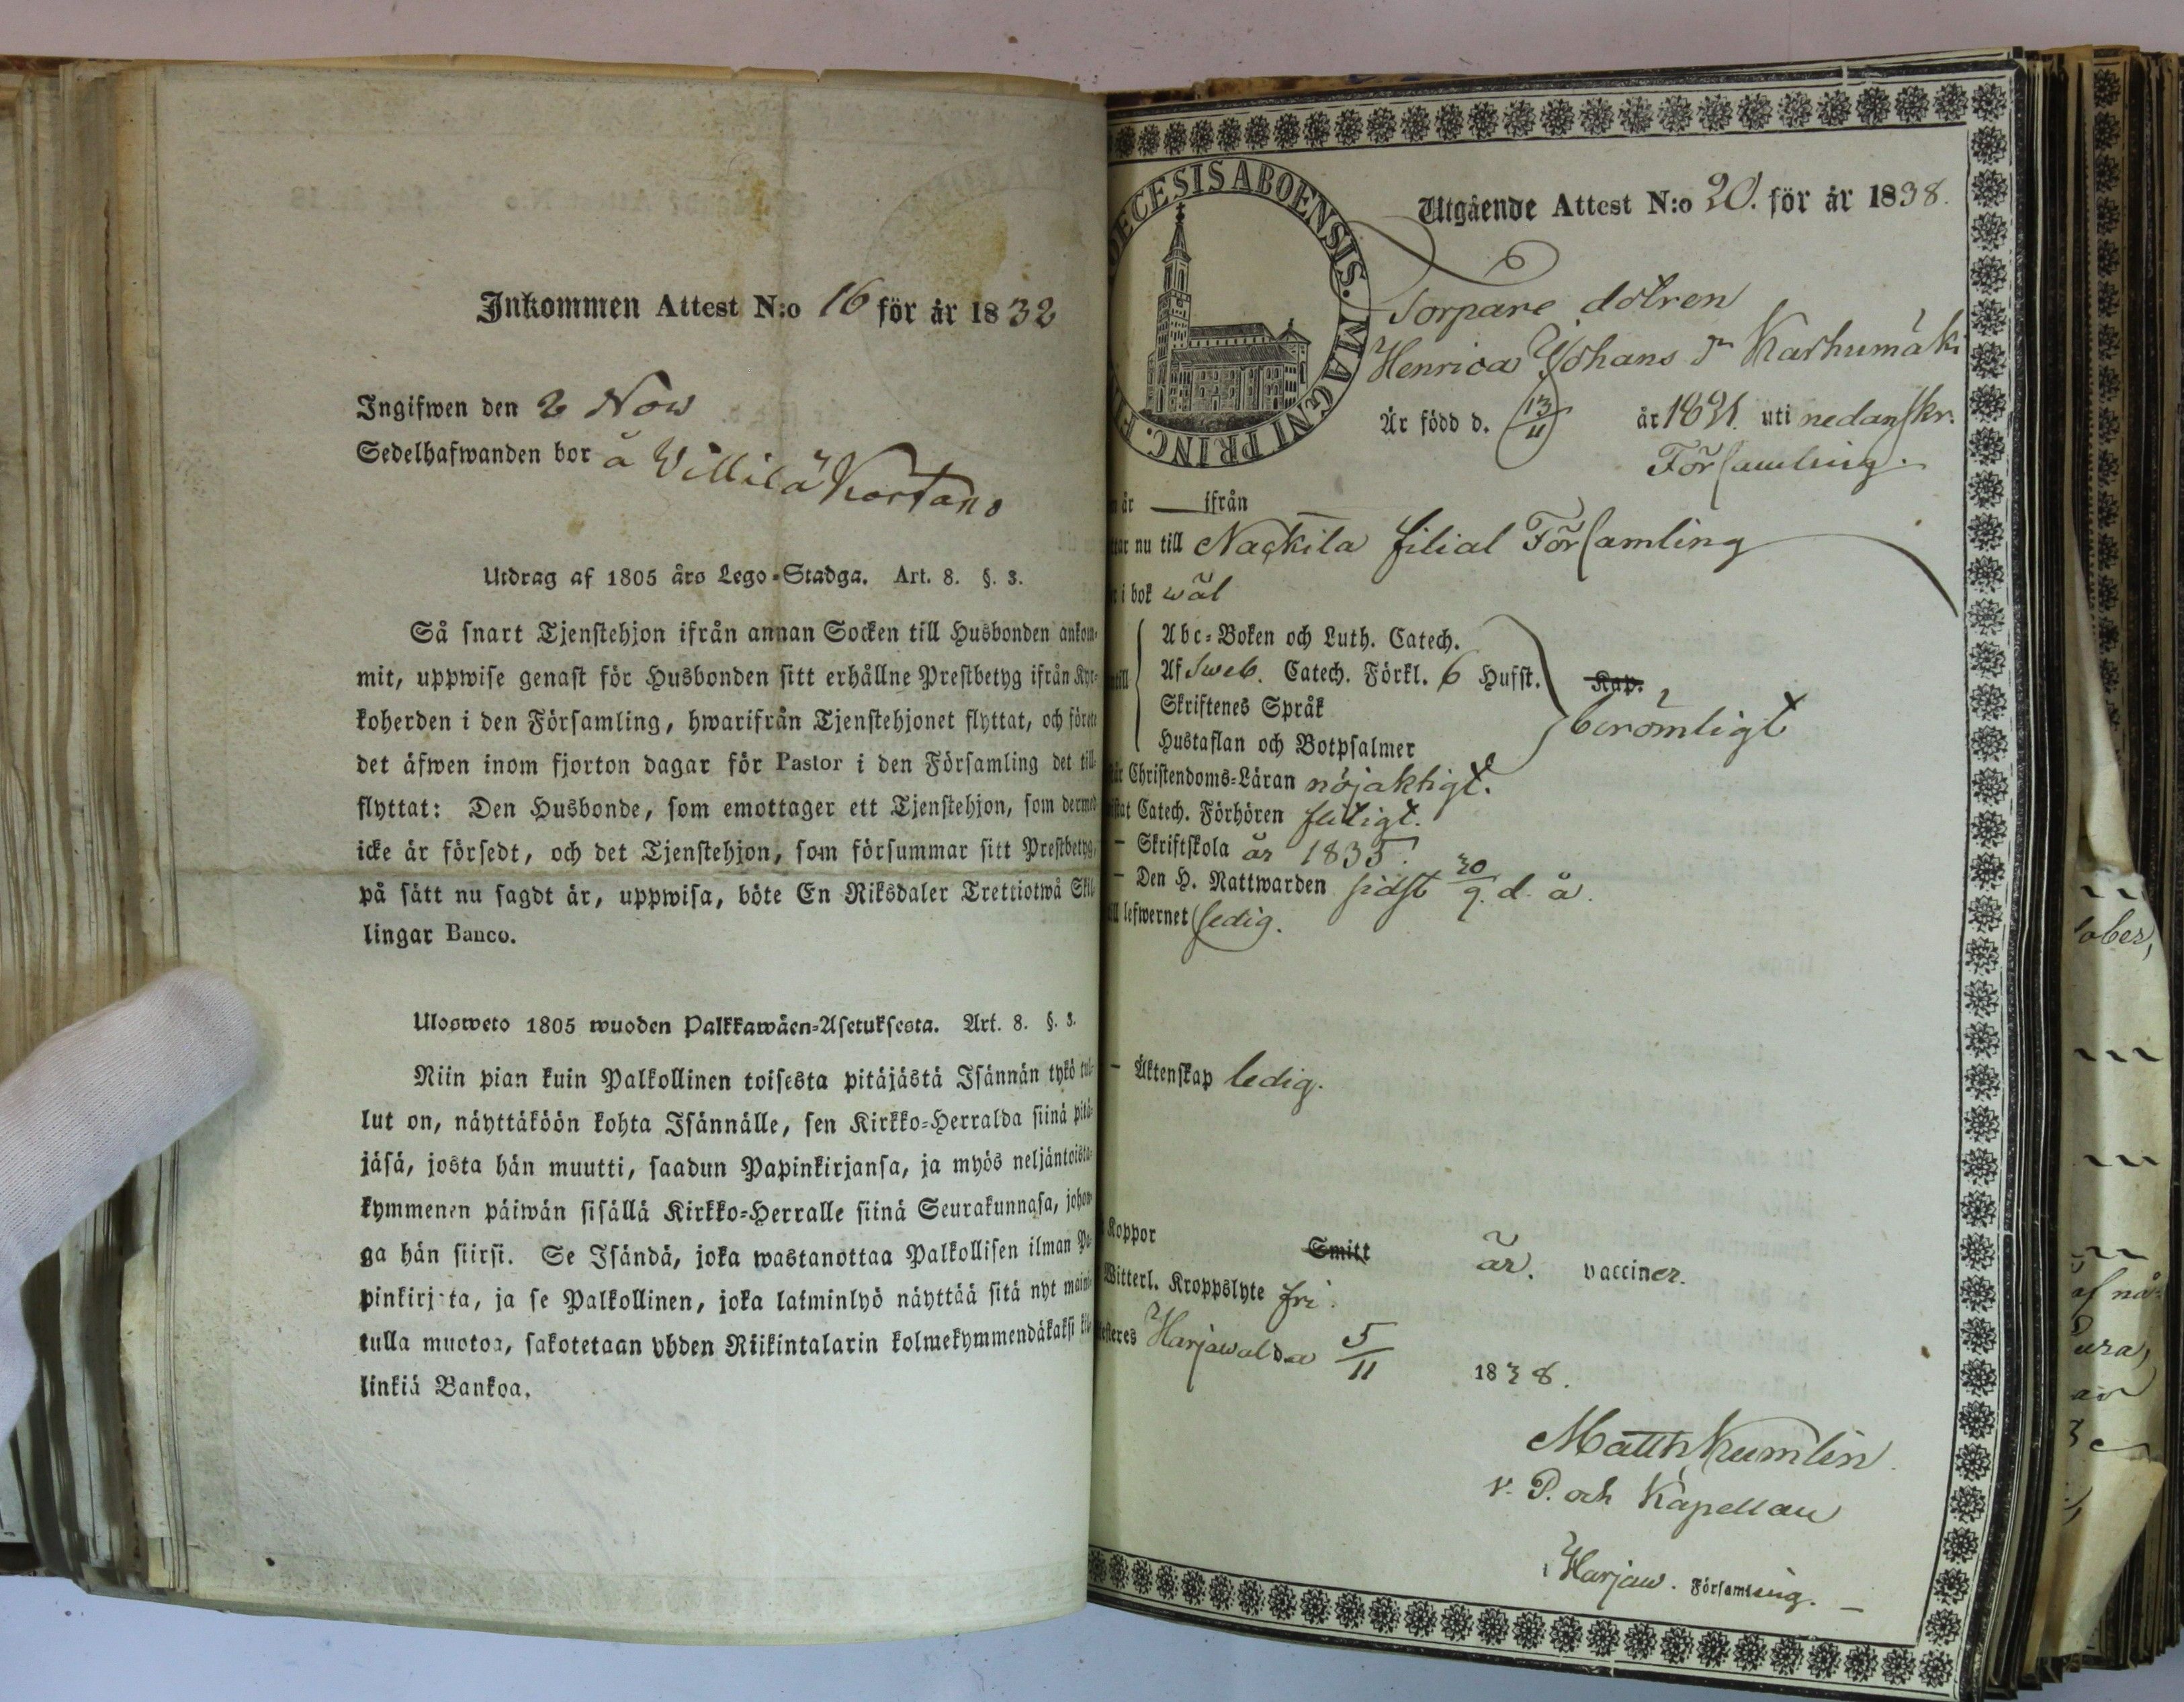 Inkommen Attest N:o 16 för år 1832
Ingifwen den 2 Nov
Sedelhafwanden bor å Villilä
Utdrag af 1805 års Lego-Stadga. Art. 8. §. 3.
Så snart Tjenstehjon ifrån annan Socken till Husbonden ankom-
mit, uppwise genast för Husbonden sitt erhållne Prestbetyg ifrån Kyr-
koherden i den Församling, hwarifrån Tjenstehjonet flyttat, och förete
det äfwen inom fjorton dagar för Pastor i den Församling det till-
flyttat: Den Husbonde, som emottager ett Tjenstehjon, som dermed
icke är försedt, och det Tjenstehjon, som försummar sitt Prestbetyg,
på sätt nu sagdt är, uppwisa, böte En Riksdaler Trettiotwå Skil-
lingar Banco.
Ulosweto 1805 wuoden Palkkawäen-Asetuksesta. Art. 8. §. 3.
Niin pian kuin Palkollinen toisesta pitäjästä Isännän tykö tul-
lut on, näyttäköön kohta Isännälle, sen Kirkko-Herralda siinä pitä-
jäsä, josta hän muutti, saadun Papinkirjansa, ja myös neljäntoista-
kymmenen päiwän sisällä Kirkko-Herralle siinä Seurakunnasa, johon-
ga hän siirsi. Se Isändä, joka wastanottaa Palkollisen ilman Pa-
pinkirjata, ja se Palkollinen, joka laiminlyö näyttää sitä nyt maini-
tulla muotoa, sakotetaan yhden Riikintalarin kolmekymmendäkaksi kil-
linkiä Bankoa.
DIOECESIS ABOENSIS. MAGNI PRINC. FI
Utgående Attest N:o 20. för år 1838.
Torpare dotren
Henrica Johans dr Karhumäki
Är född d. 13/11 år 1821 uti nedanskr.
Församling.
är — ifrån
nu till Nackila filial Församling
i bok wäl
Abc-Boken och Luth. Catech.
Af Sweb. Catech. Förkl. 6 Hufst. Kap.
Skriftenes Språk
Hustaflan och Botpsalmer
berömligt
Christendoms-Läran nöjaktigt.
Catech. Förhören flitigt.
— Skriftskola år 1835.
— Den H. Nattwarden sidst 30/9. d. å.
lefwernet sedig.
— Äktenskap ledig.
Koppor Smitt är. vacciner.
Witterl. Kroppslyte fri.
Harjawalda 5/11 1838.
Matth Kumlin
v. P. och Kapellan
i Harjaw. Församling. —